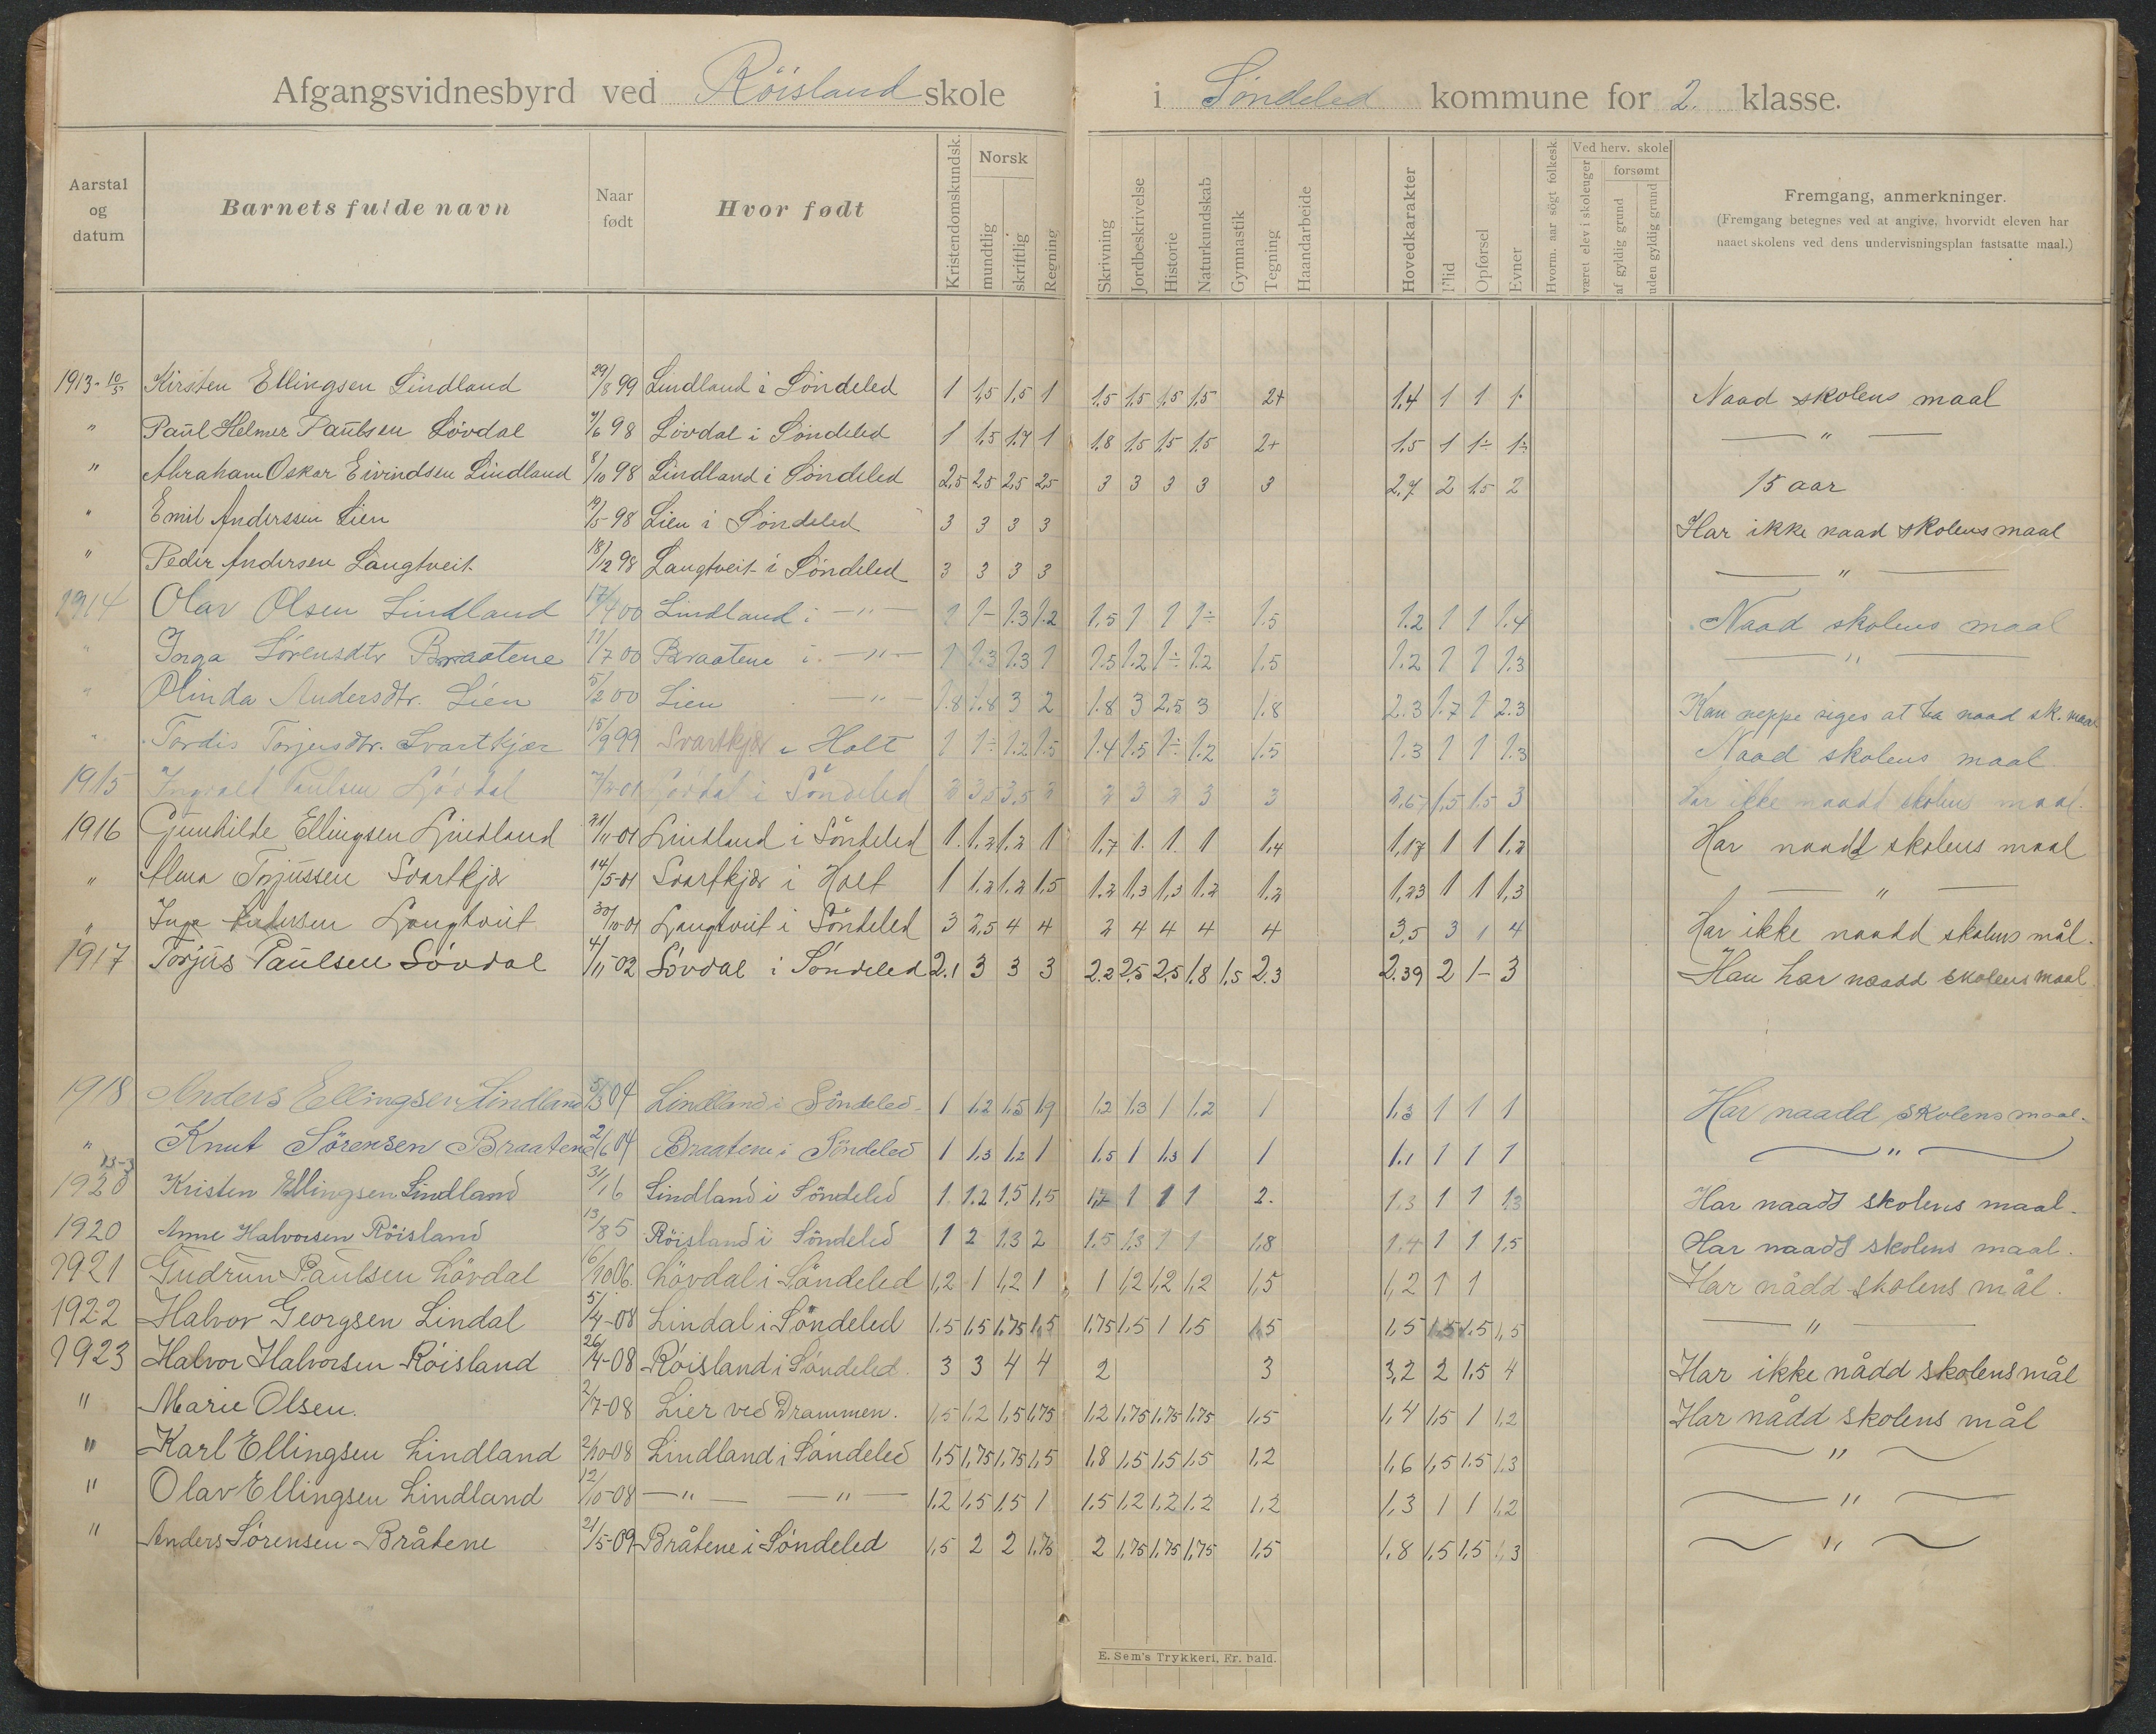 Afgangsvidnesbyrd ved Röisland skole i Söndeled kommune for 2. klasse.
Aarstal og datum
Barnets fulde navn
Naar født
Hvor født
Kristendomskundsk.
Norsk
mundtlig
skriftlig
Regning
Skrivning
Jordbeskrivelse
Historie
Naturkundskab
Gymnastik
Tegning
Haandarbeide
Hovedkarakter
Flid
Opførsel
Evner
Hvorm. aar søgt folkesk
været elev i skoleuger
Ved herv. skole
forsømt
af gyldig grund
uden gyldig grund
Fremgang, anmerkninger.
(Fremgang betegnes ved at angive, hvorvidt eleven har
naaet skolens ved dens undervisningsplan fastsatte maal.)
1913-10/5 Kirsten Ellingsen Lindland 29/8 99 Lindland i Söndeled 1 1,5 1,5 1 1.5 1.5 1.5 1.5 2+ 1.4 1 1 1 Naad skolens maal
" Paul Helmer Paulsen Lövdal 7/6 98 Lövdal i Söndeled 1 1.5 1.7 1 1.8 1.5 1.5 1.5 2+ 1.5 1 1÷ 1÷ — " —
" Abraham Oskar Eivindsen Lindland 8/10 98 Lindland i Söndeled 2,5 2,5 2,5 2,5 3 3 3 3 3 2,7 2 1.5 2 15 aar
" Emil Anderssen Lien 19/5-98 Lien i Söndeled 3 3 3 3 Har ikke naad skolens maal
" Peder Andersen Langtveit 18/12 98 Langtveit i Söndeled 3 3 3 3 — " —
1914 Olav Olsen Lindland 17/4 00 Lindland i — " — 1 1- 1.3 1.2 1.5 1 1 1÷ 1.5 1.2 1 1 1.4 Naad skolens maal
" Inga Sörensdtr Braatene 11/7 00 Braatene i — " — 1 1.3 1.3 1 1.5 1.2 1÷ 1.2 1.5 1.2 1 1 1.3 — " —
" Olinda Andersdtr. Lien 5/2 00 Lien — " — 1.8 1.8 3 2 1.8 3 2,5 3 1.8 2.3 1.7 1 2.3 Kan neppe siges at ha naad sk. maal
" Tordis Torjersdtr. Svartkjær 15/9 99 Svartkjær i Holt 1 1÷ 1.2 1.5 1.4 1.5 1÷ 1.2 1.5 1.3 1 1 1.3 Naad skolens maal
1915 Ingvald Paulsen Lövdal 7/2-01 Lövdal i Söndeled 3 3,5 3,5 3 3 3 3 3 3 2,67 1,5 1.5 3 Har ikke naadd skolens maal.
1916 Gunhilde Ellingsen Lindland 21/11-01 Lindland i Söndeled 1. 1,2 1,2 1 1,7 1. 1. 1 1,4 1,17 1 1 1,2 Har naadd skolens maal
" Alma Torjussen Svartkjær 14/5-01 Svartkjær i Holt 1 1.2 1.2 1.5 1.2 1,3 1,3 1.2 1.2 1,23 1 1 1,3 — " —
" Inga Andersen Langtveit 30/10-01 Langtveit i Söndeled 3 2,5 4 4 2 4 4 4 4 3,5 3 1 4 Har ikke naadd skolens mål.
1917 Torjus Paulsen Lövdal 4/11-02 Lövdal i Söndeled 2.1 3 3 3 2.2 2,5 2,5 1,8 1,5 2.3 2.39 2 1- 3 Han har naadd skolens maal
1918 Anders Ellingsen Lindland 5/3 04 Lindland i Söndeled 1 1.2 1.5 1.9 1.2 1.3 1 1.2 1 1,3 1 1 1 Har naadd skolens maal.
" Knut Sörensen Braatene 2/6 04 Braatene i Söndeled 1 1.3 1.2 1 1.5 1 1.3 1 1 1.1 1 1 1 — " —
13-3 1920 Kristen Ellingsen Lindland 31/1 6 Lindland i Söndeled 1 1.2 1.5 1,5 1,7 1 1 1 2. 1.3 1 1 1.3 Har naadd skolens maal.
1920 Anne Halvorsen Röisland 13/8 5 Röisland i Söndeled 1 2 1.3 2 1.5 1.3 1 1 1.8 1.4 1 1 1.5 Har naadd skolens maal.
1921 Gudrun Paulsen Lövdal 16/10 06. Lövdal i Söndeled 1,2 1 1,2 1 1 1,2 1,2 1,2 1,5 1,2 1 1 Har nådd skolens mål.
1922 Halvor Georgsen Lindal 5/4-08 Lindal i Söndeled 1.5 1.5 1.75 1,5 1.75 1.5 1 1.5 1.5 1.5 1.5 1.5 1,5 — " —
1923 Halvor Halvorsen Röisland 26/4-08 Röisland i Söndeled. 3 3 4 4 2 3 3,2 2 1.5 4 Har ikke nådd skolens mål
" Marie Olsen. 2/7-08 Lier ved Drammen. 1,5 1.2 1,5 1,75 1,2 1,75 1,75 1,75 1,5 1,4 1,5 1 1,2 Har nådd skolens mål
" Karl Ellingsen Lindland 2/10-08 Lindland i Söndeled 1,5 1,75 1,75 1,5 1,8 1,5 1,5 1.5 1.2 1,6 1,5 1.5 1.3 — " —
" Olav Ellingsen Lindland 12/10-08 — " — — " — 1.2 1.5 1.5 1 1.5 1.2 1.2 1.2 1,2 1,3 1 1 1,2 — " —
" Anders Sörensen Bråtene 21/5-09 Bråtene i Söndeled 1,5 2 2 1.75 2 1,75 1.75 1,75 1,5 1,8 1,5 1,5 1,3 — " —
E. Sem's Trykkeri, Fr. hald.